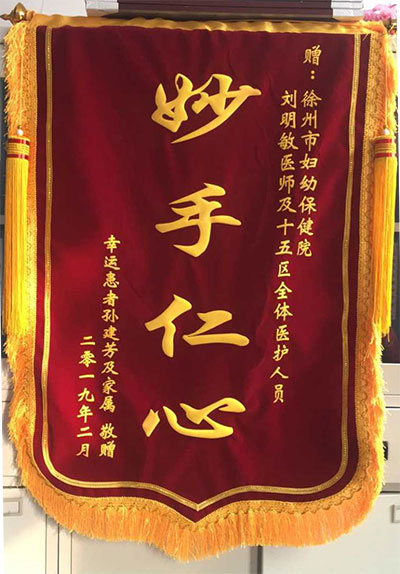 赠：徐州市妇幼保健院
刘明敏医师及十五区全体医护人员
妙手仁心
幸运患者孙建芳及家属 敬赠
二零一九年二月